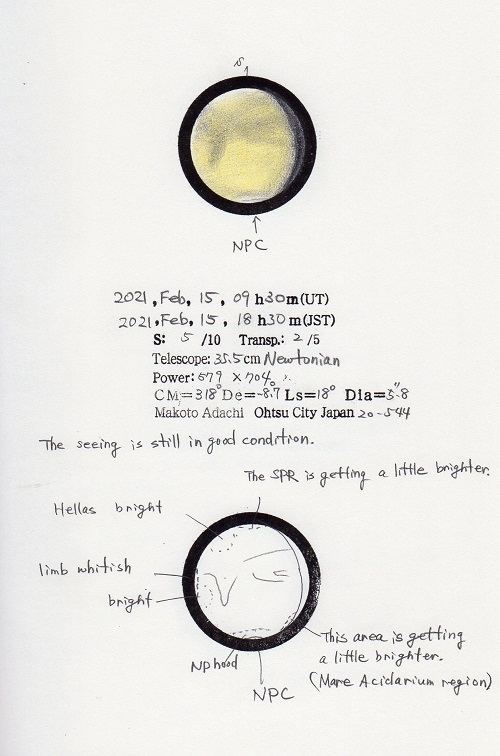 S
NPC
2021, Feb, 15, 09 h30m(UT)
2021, Feb, 15, 18 h30m(JST)
S: 5 /10 Transp.: 2 /5
Telescope: 35.5cm Newtonian
Power: 579 × 704
CM=318° De=-8.7 Ls=18° Dia=5".8
Makoto Adachi Ohtsu City Japan 20-544
The seeing is still in good condition.
The SPR is getting a little brighter.
Hellas bright
limb whitish
bright
This area is getting
a little brighter.
(Mare Acidarium region)
NPhood
NPC